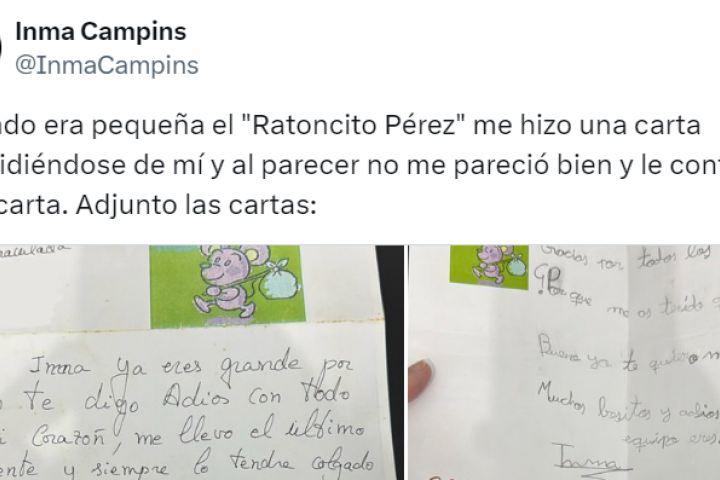 Inma Campins
@InmaCampins
ndo era pequeña el "Ratoncito Pérez" me hizo una carta
idiéndose de mí y al parecer no me pareció bien y le con
carta. Adjunto las cartas:
Inma ya eres grande por
te digo Adios con todo
i Corazoñ, me llevo el ultimo
ente y siempre lo tendre colgado
Gracias por todos los
Porque me os tenido
Bueno ya te quiero m
Muchos besitos y adios
equipo eres
Inma